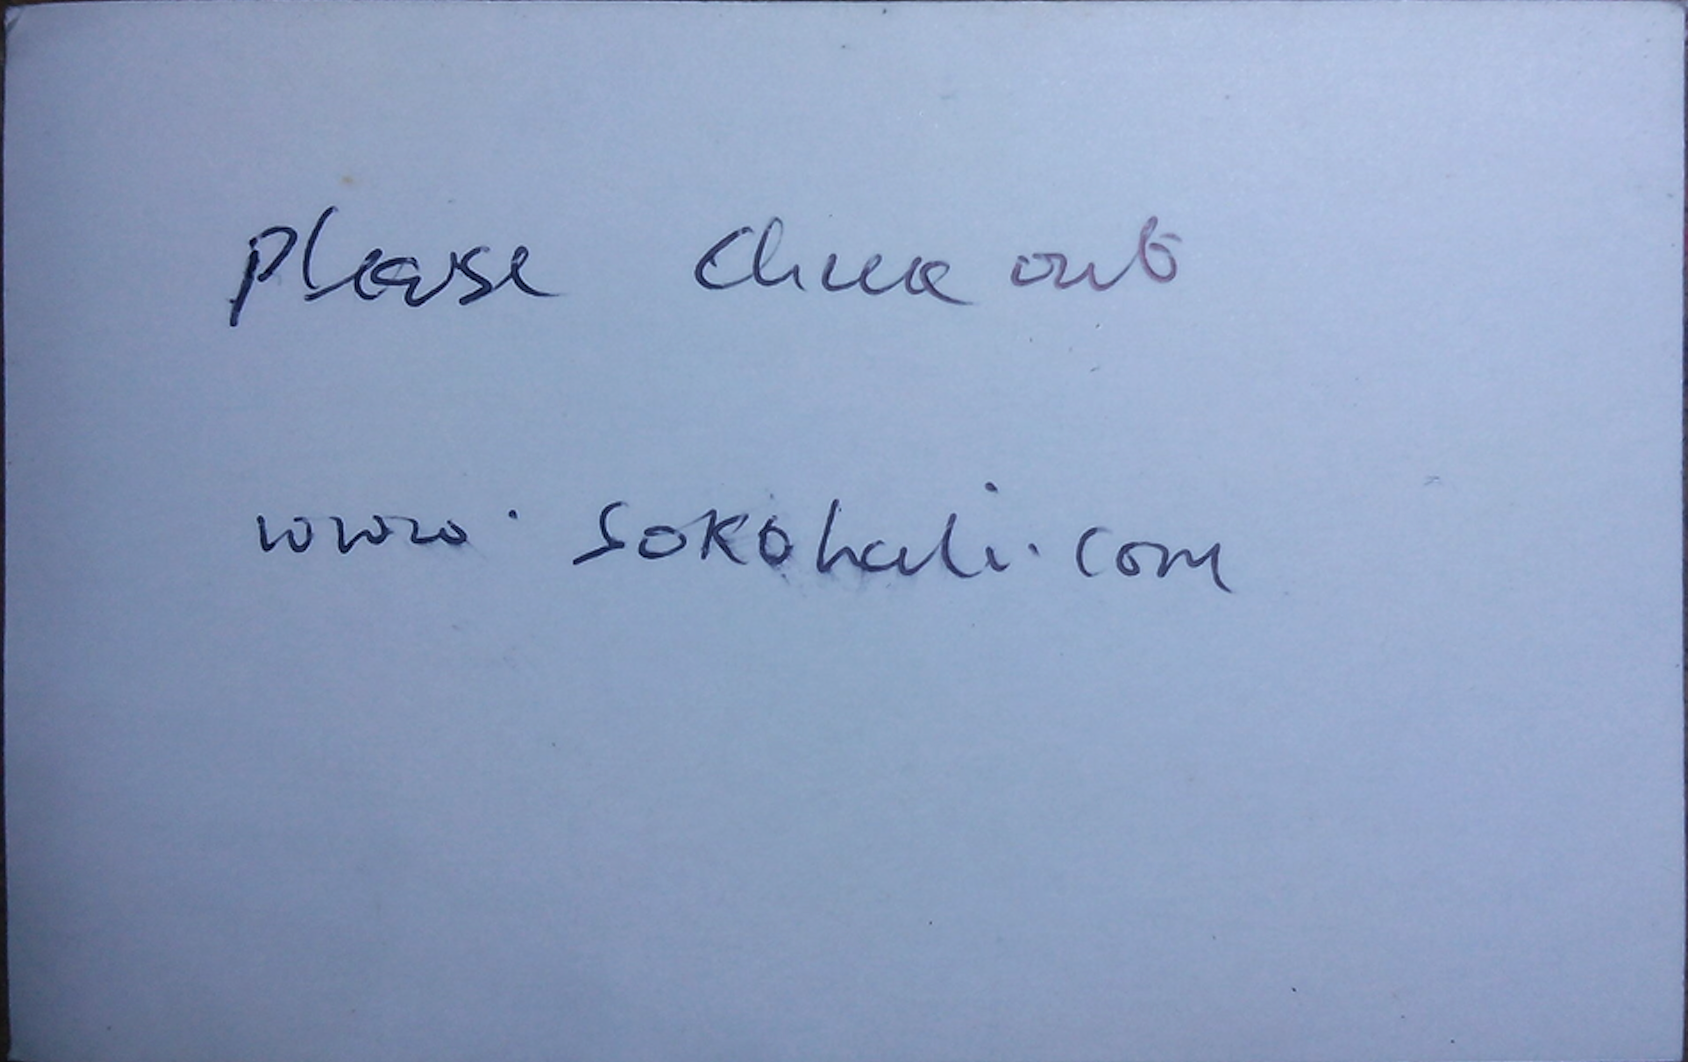 Please check out
www.sokohali.com